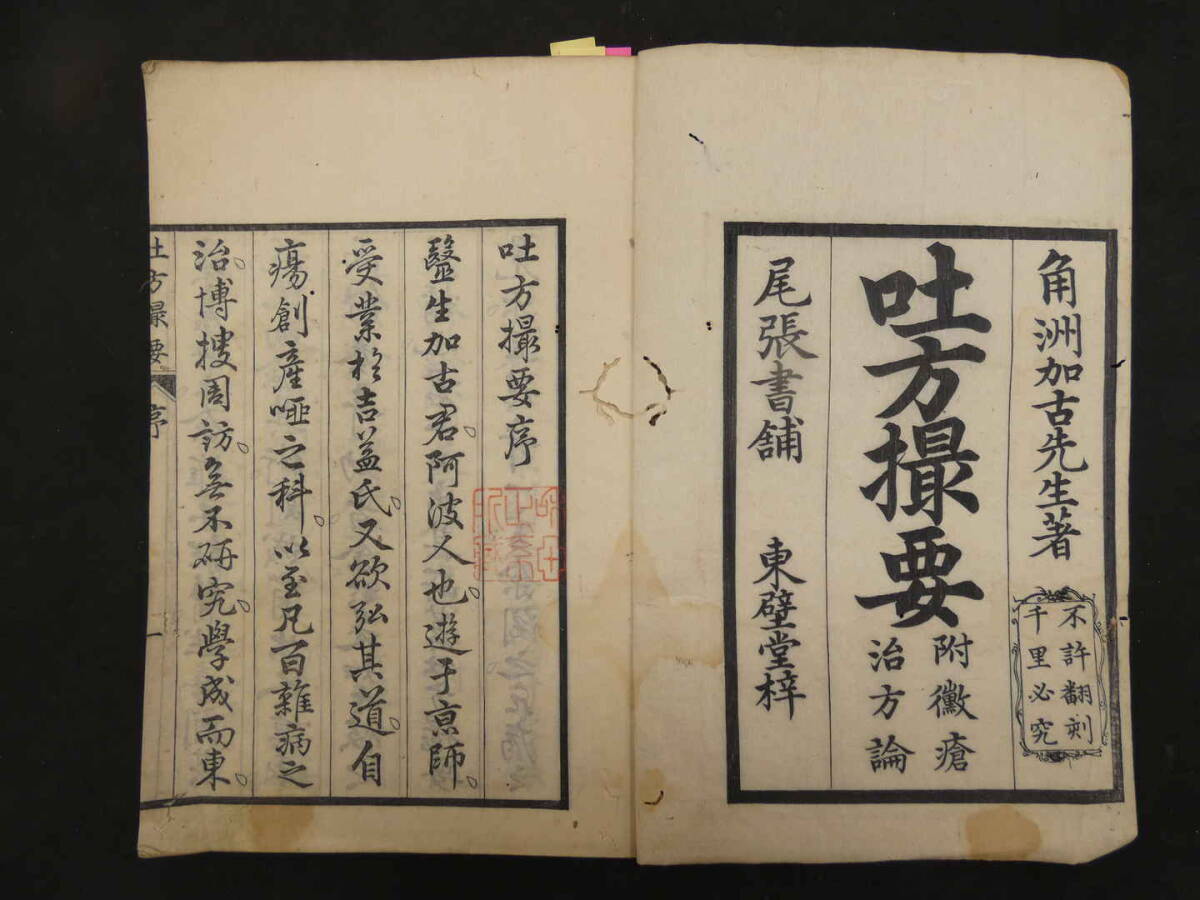 角洲加古先生著
不許翻刻
千里必究
吐方撮要
附黴瘡
治方論
尾張書舗 東壁堂梓
吐方撮要序
毉生加古君。阿波人也。遊于京師。
受業於吉益氏。又欲弘其道。自
瘍創産啞之科。以至凡百雜病之
治。博捜周訪。無不研究。學成而東。
吐方撮要 序 一